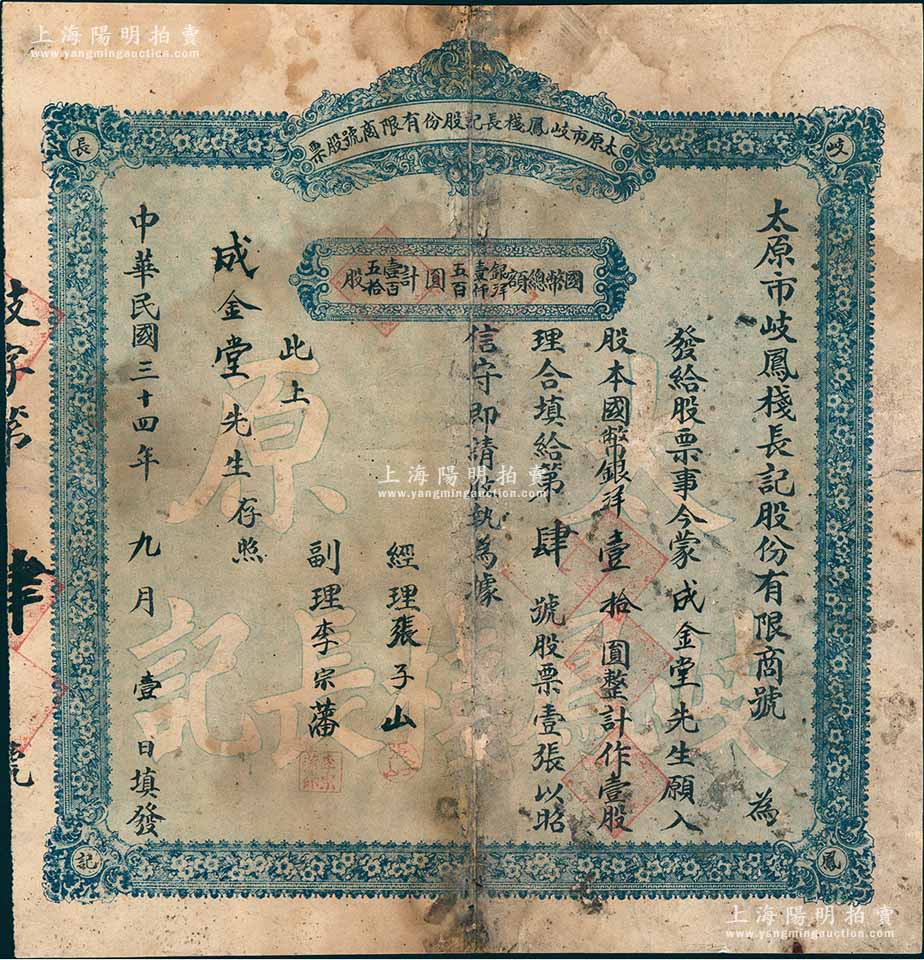 上海陽明拍賣
www.yangmingauction.com
太原市岐鳳棧長記股份有限商號股票
岐
長
國幣總額銀洋壹仟五百圓計壹百五拾股
太原市岐鳳棧長記股份有限商號 為
發給股票事今蒙成金堂先生願入
股本國幣銀洋壹拾圓整計作壹股
理合填給第肆號股票壹張以昭
信守即請收執為據
此上
成金堂先生存照
經理張子山
副理李宗藩
中華民國三十四年九月壹日填發
太原
岐鳳棧長記
上海陽明拍賣
www.yangmingauction.com
岐字第肆號
鳳
記
上海陽明拍賣
www.yangmingauction.com